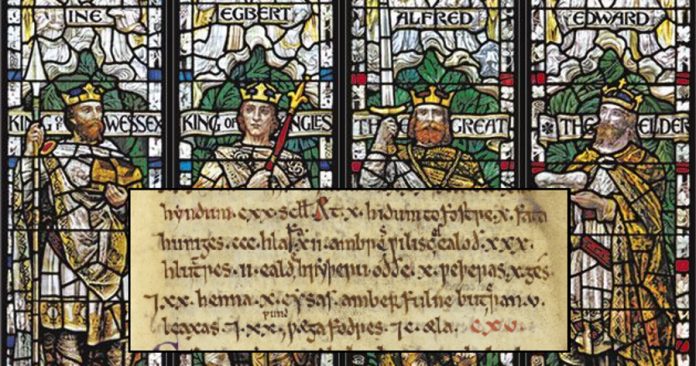 INE EGBERT ALFRED EDWARD
KING OF WESSEX KING OF NGLES THE GREAT THE ELDER
hyndum. cxx. scll. Æt. x. hidum to fostre. x. fata
huniges. ccc. hlafa. xii. ambra wilisc ealoð. xxx.
hluttres. ii. eald hryþeru oððe. x. weþeras. x. ges.
⁊ xx. henna. x. cysas. amber fulne buteran. v.
leaxas. ⁊ xx. pund wega fodres. ⁊ c. æla. cxv.